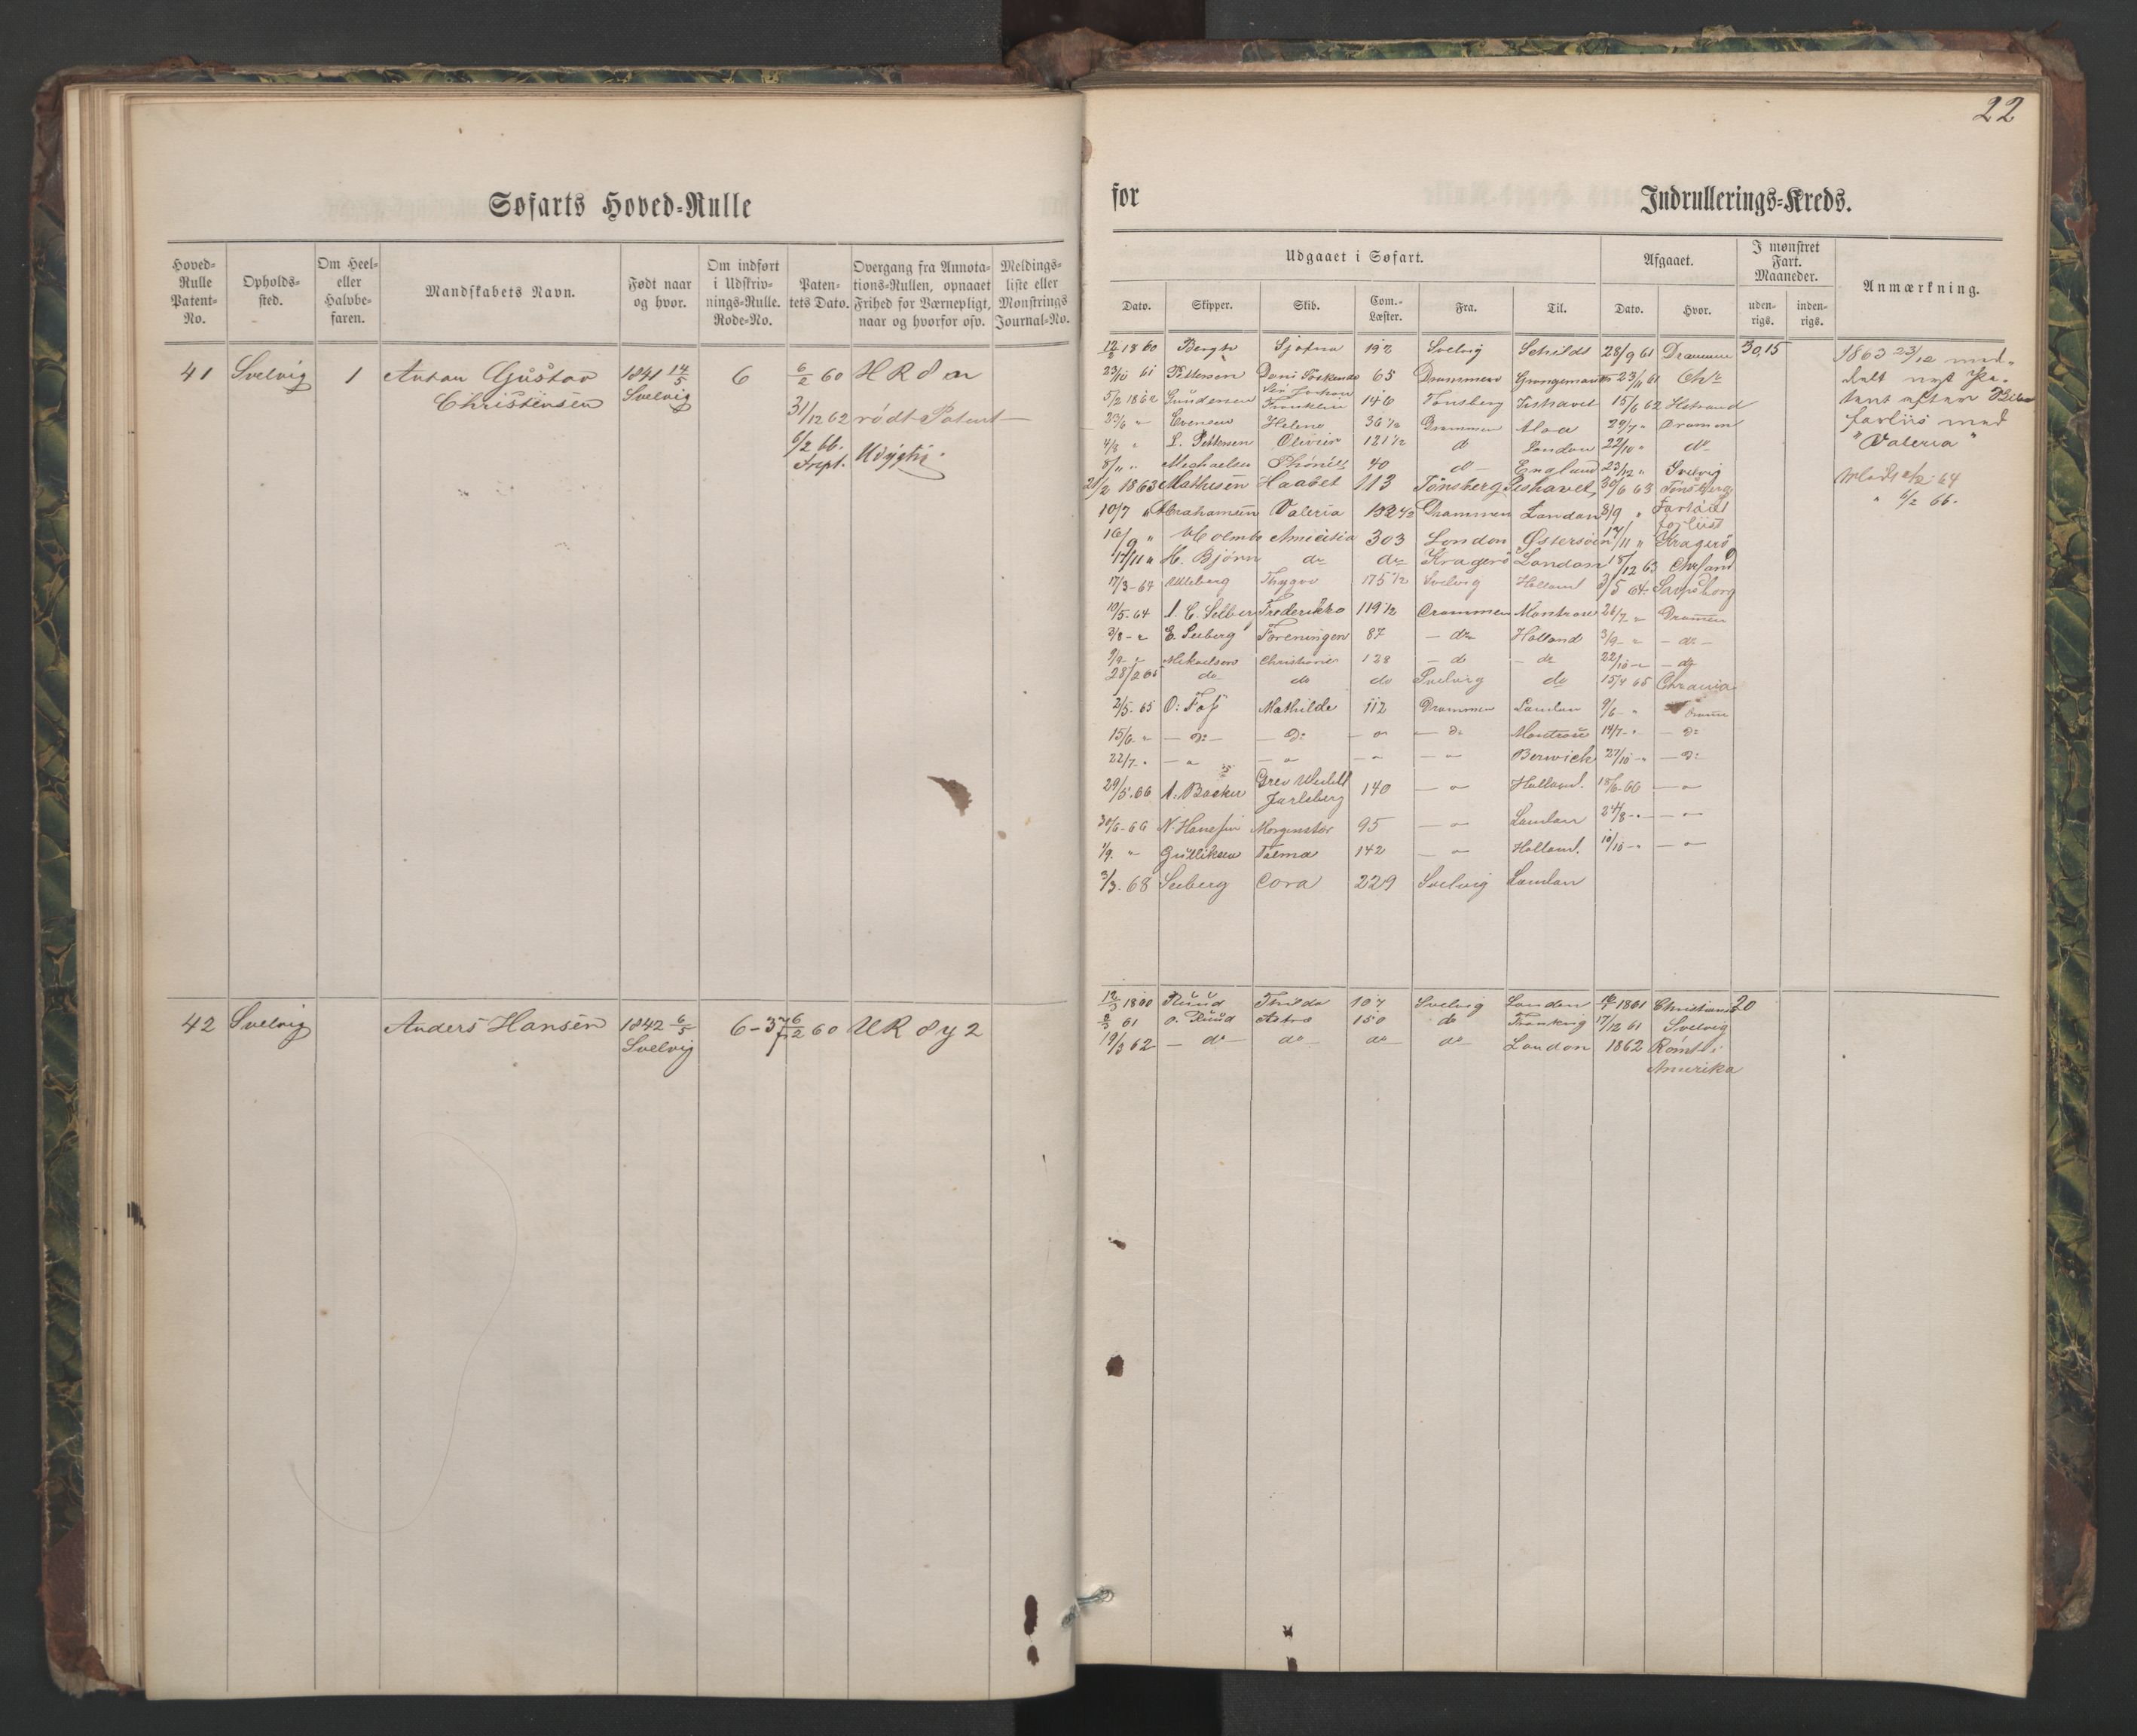 22
Søfarts Hoved-Rulle
for Indrullerings-Kreds.
Hoved-Rulle Patent-No.
Opholds-sted.
Om Heel- eller Halvbe-faren.
Mandskabets Navn.
Født naar og hvor.
Om indført i Udskriv-nings-Rulle. Rode-No.
Paten-tets Dato.
Overgang fra Annota-tions-Rullen, opnaaet Frihed for Værnepligt, naar og hvorfor osv.
Meldings-liste eller Mønstrings Journal-No.
Udgaaet i Søfart.
Afgaaet.
I mønstret Fart. Maaneder.
Anmærkning.
Dato. Skipper. Skib. Com.-Læster. Fra. Til. Dato. Hvor. uden-rigs. inden-rigs.
41 Svelvig 1 Anton Gustav 1841 14/5 6 6/2 60 H R 8
Christensen Svelvig
31/12 62 rødt Patent
6/2 66. Udygtig.
12/3 1860 Sjofna 192 Svelvig Schilds 28/9 61 Drammen 30,15
23/10 61 Pettersen 65 Drammen 23/11 61
5/2 1862 Gundersen Sir John Franklin 146 Tønsberg Iishavet 15/6 62 Hstrand
23/6 " Evensen Helene 36 1/2 Drammen Aloa 29/7 " Dramen
4/8 " L. Pettersen Olivia 121 1/2 do London 22/10 " do
8/11 " Michaelsen Phønix 40 do England 23/12 " Svelvig
21/2 1863 Mathisen Haabet 113 Tønsberg Iishavet 30/6 63 Tønsberg
10/7 " Abrahamsen Valeria 132 1/2 Drammen London 8/9 " forliist
16/9 " Holmb Amicitia 303 London Østersøen 17/11 " Kragerø
17/11 " H. Bjørn do do Kragerø London 18/12 63 Chrsand
17/3-64 Ulleberg Thygve 175 1/2 Svelvig Holland 3/5 64 Sarpsborg
10/5-64 Frederikke 119 1/2 Drammen Montrose 26/7 - " Dramen
3/8 - " E. Seeberg Foreningen 87 - do Holland 3/9 - " - do -
9/9 - " Mikaelsen Christiane 128 - do - do 22/10 - " - do
28/2 65 do do do Svelvig do 15/4 65 Chrania
2/5-65 O: Foss Mathilde 112 Drammen London 9/6 - " Dramn
15/6 - " - do - - do - " - do Montrose 14/7 - " - do
22/7 - " - " - " - " - " Berwick 27/10 - " - do
29/5.66 A. Backer Grev Wedel Jarlsberg 140 - " Holland. 18/6-66 - "
30/6-66 N. Hansen Morgenstar 95 - " London 24/8 - " - "
1/9. " Gulliksen Talma 142 - " Holland. 10/10 - " - "
3/3.68 Seeberg Cora 229 Svelvig London
1863 23/12 med-
delt nyt Pa-
tent efter
forliis med
"Valeria"
64
" 6/2 66.
42 Svelvig Anders Hansen 1842 6/5 6-37 6/2 60 U R 8 y 2
Svelvig
12/3 1860 Ruud Thilda 107 Svelvig London 1861 Christiania 20
2/3 61 O. Ruud Astra 150 do Frankrig 17/12 61 Svelvig
19/3 62 - do - do - do do London 1862 Rømt i
Amerika